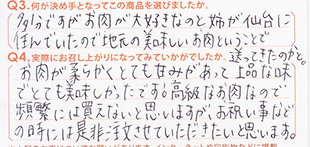 Q3.何が決め手となってこの商品を選びましたか。
多分ですがお肉が大好きなのと姉が仙台に
住んでいたので地元の美味しいお肉ということで
送ってきたのかと。
Q4.実際にお召し上がりになってみていかがでしたか。
お肉が柔らかくとても甘みがあって上品な味
でとても美味しかったです。高級なお肉なので
頻繁には買えないと思いますが、お祝い事など
の時には是非注文させていただきたいと思います。